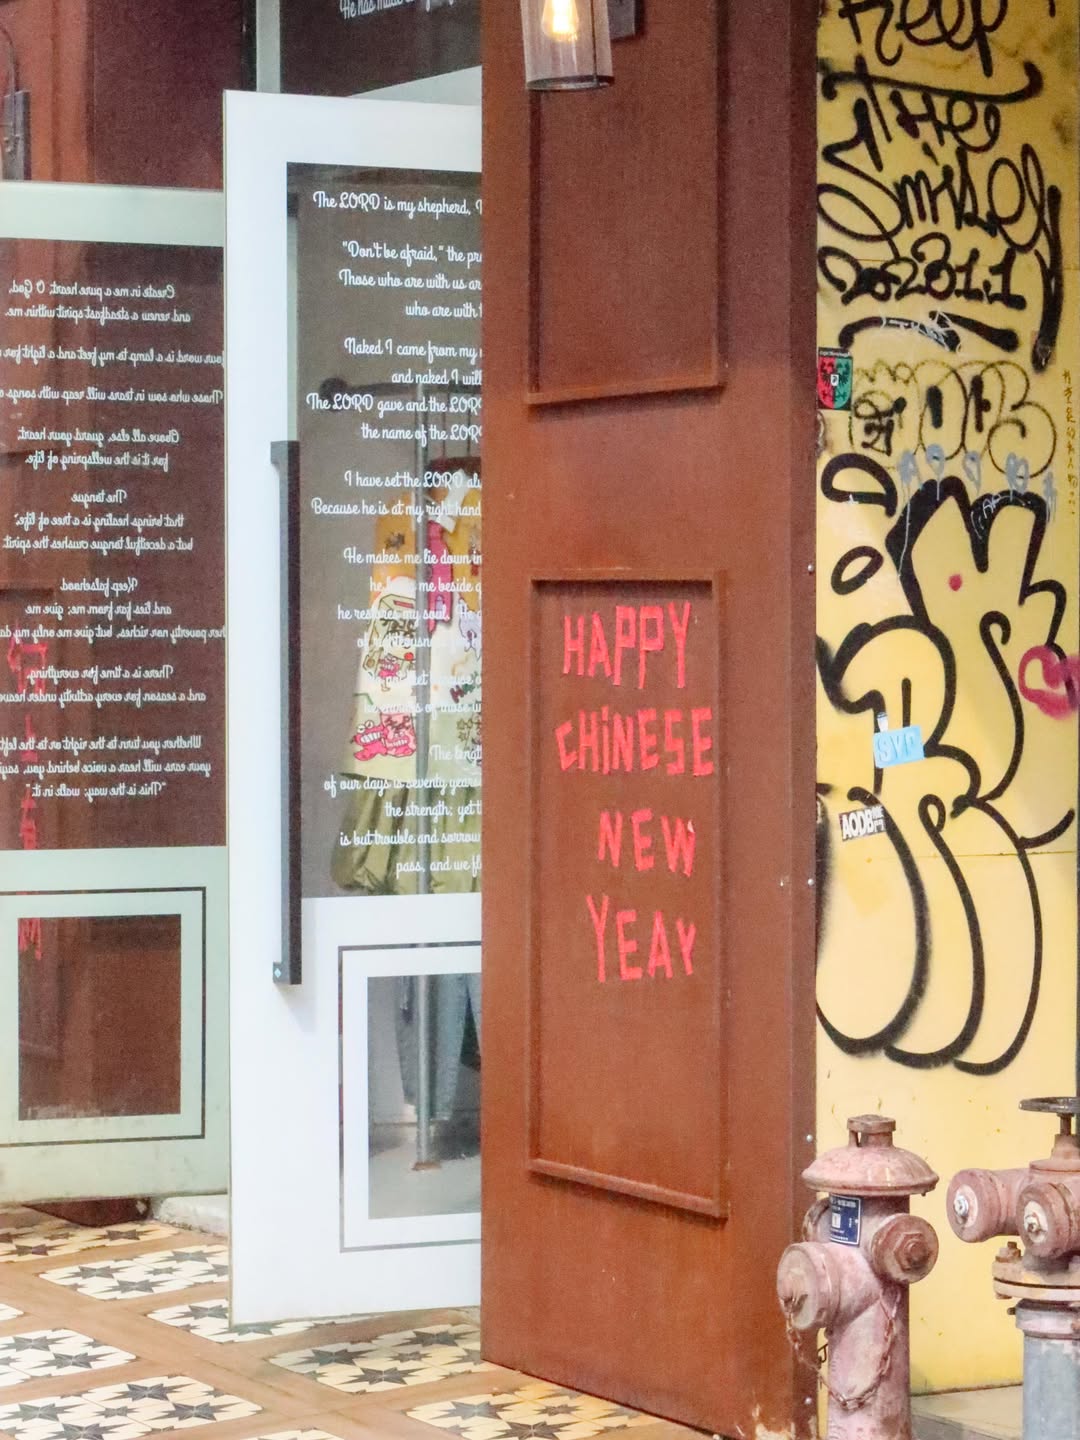 He has made
Create in me a pure heart, O God,
and renew a steadfast spirit within me.
your word is a lamp to my feet and a light for
Those who sow in tears will reap with songs o
Above all else, guard your heart,
for it is the wellspring of life.
The tongue
that brings healing is a tree of life,
but a deceitful tongue crushes the spirit.
Keep falsehood
and lies far from me; give me
her poverty nor riches, but give me only my da
There is a time for everything,
and a season for every activity under heave
Whether you turn to the right or to the left
your ears will hear a voice behind you, sayi
"This is the way; walk in it."
The LORD is my shepherd,
"Don't be afraid," the pr
Those who are with us ar
who are with t
Naked I came from my
and naked I will
The LORD gave and the LOR
the name of the LOR
I have set the LORD al
Because he is at my right hand
He makes me lie down in
he me beside q
he restores my soul. He g
of righteousness
The lengt
of our days is seventy years
the strength; yet t
is but trouble and sorrow
pass, and we fl
HAPPY
CHINESE
NEW
YEAR
Keep
THe
Smile
2023.1.1
SVP
AODB